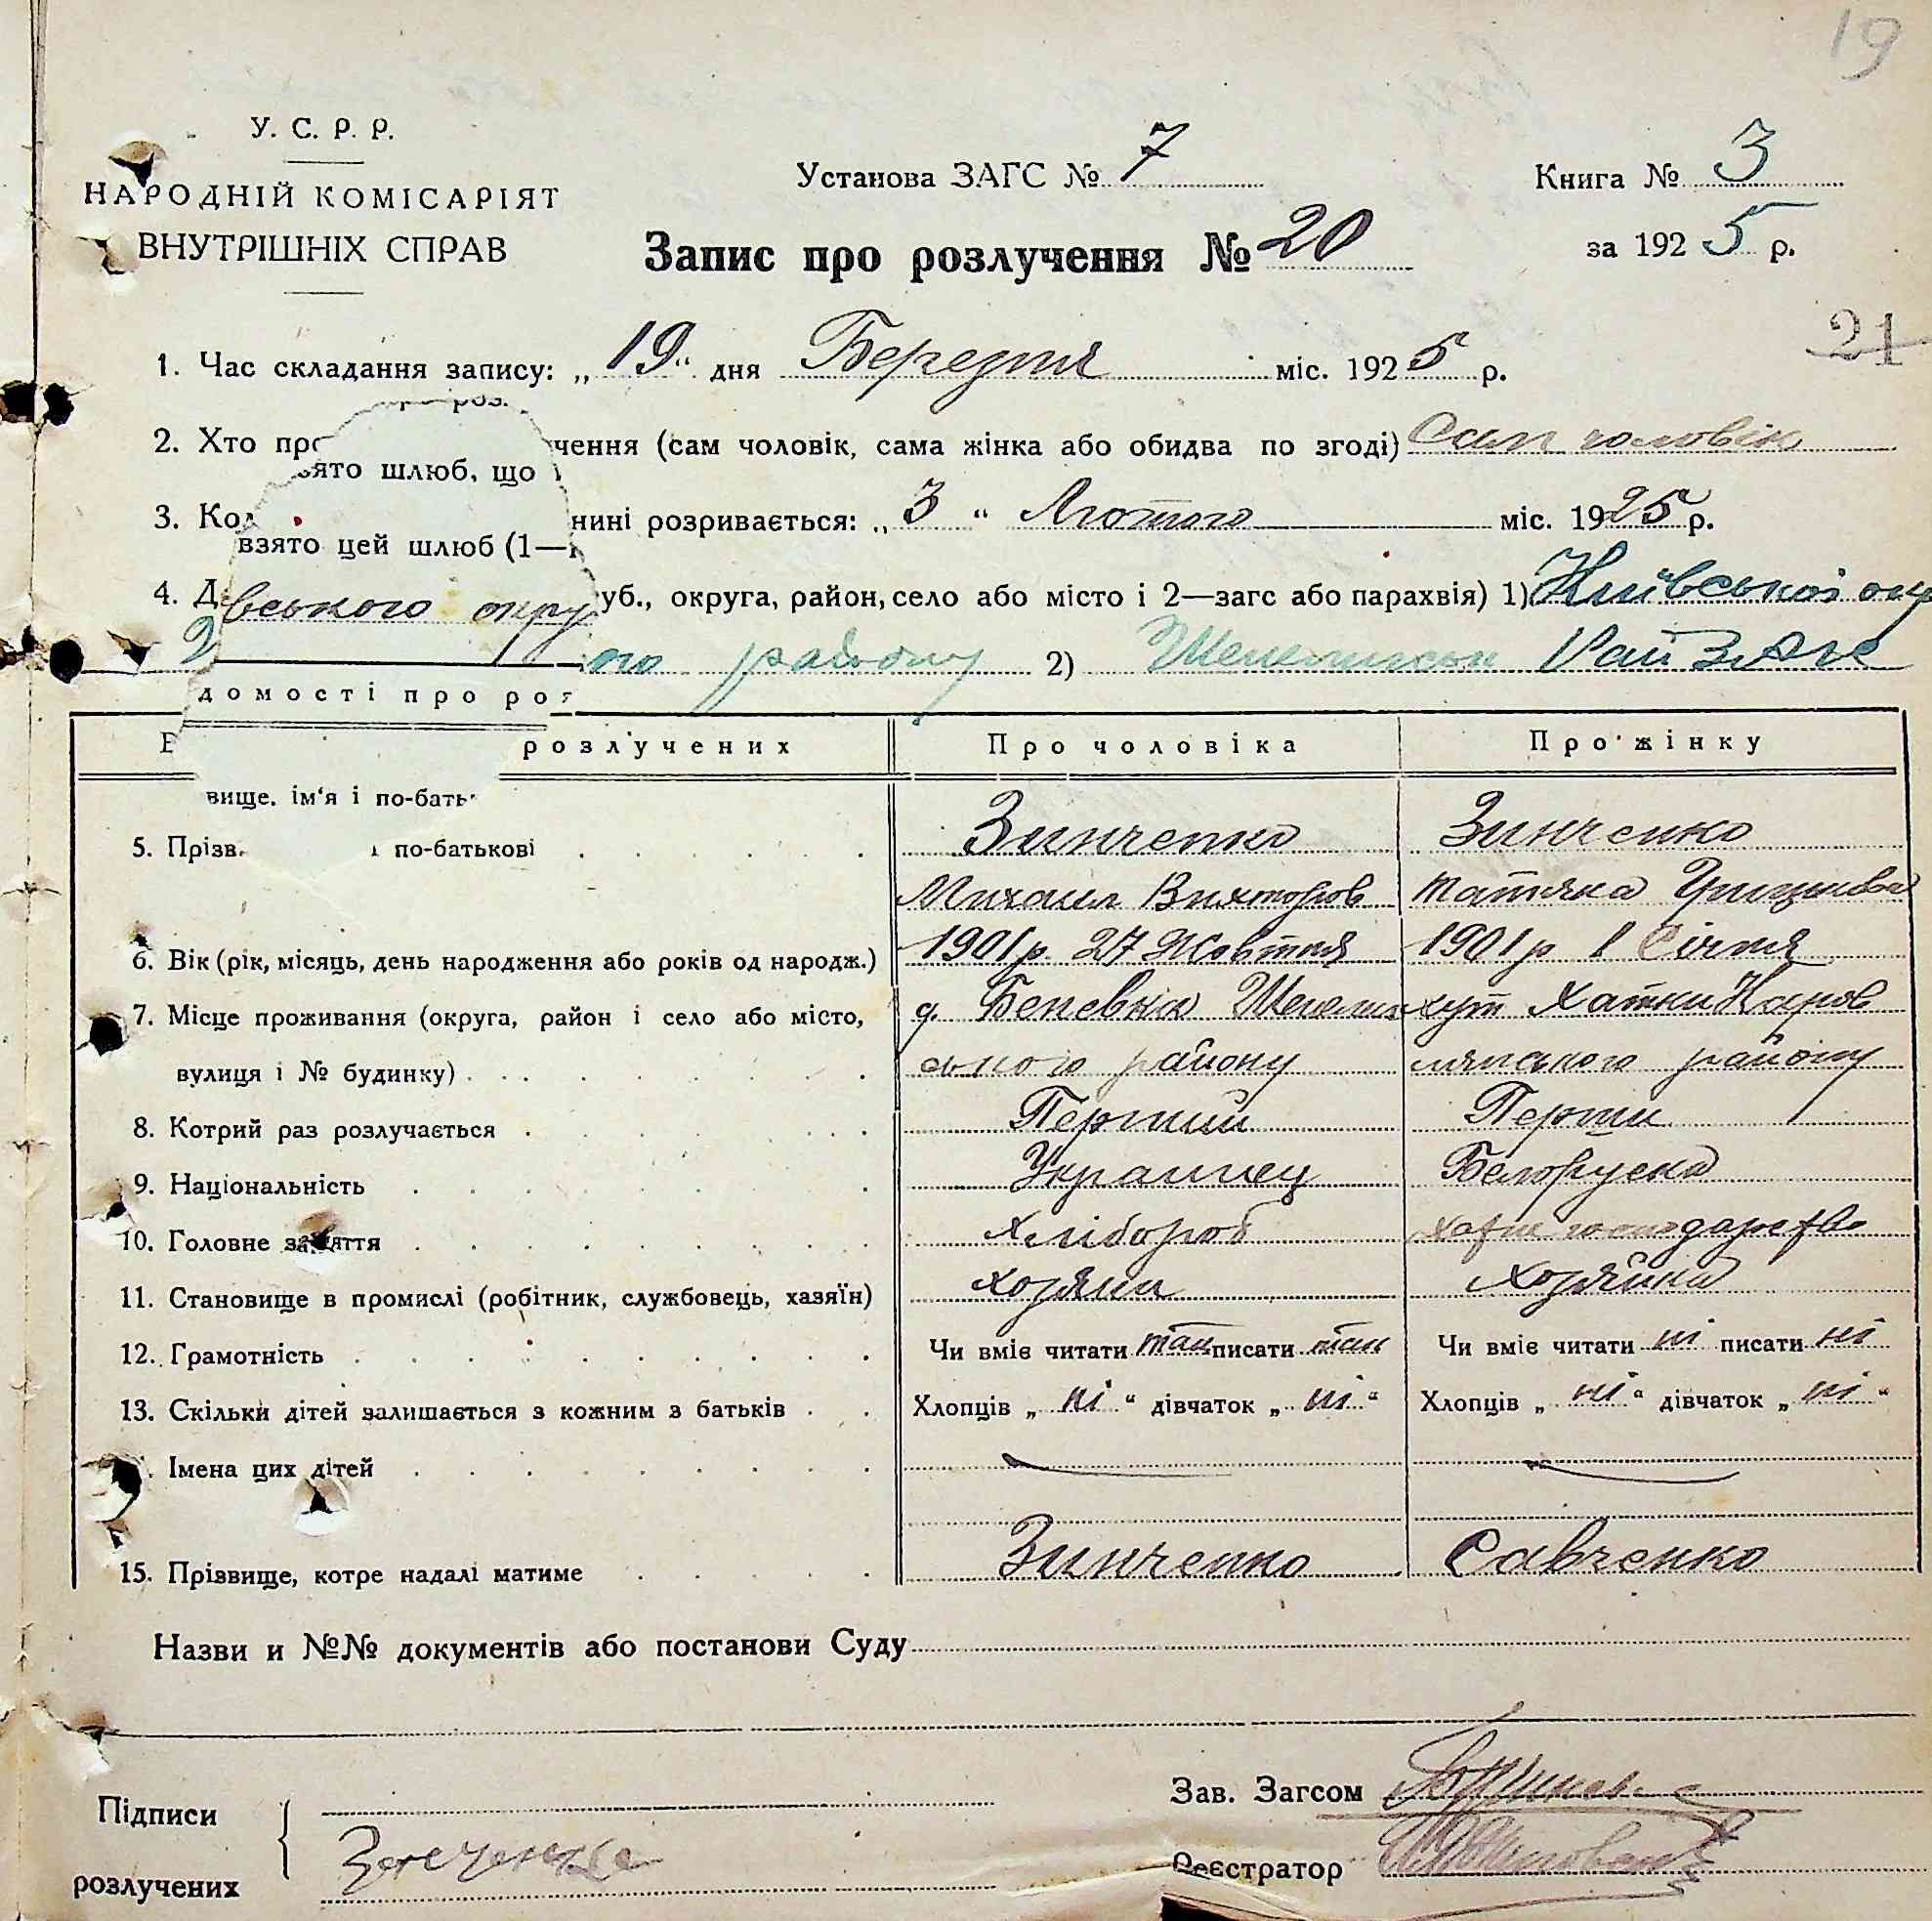 19
У. С. Р. Р.
НАРОДНІЙ КОМІСАРІЯТ
ВНУТРІШНІХ СПРАВ
Установа ЗАГС № 7
Книга № 3
Запис про розлучення № 20
за 1925 р.
21
1. Час складання запису: „19“ дня Березня міс. 1925 р.
2. Хто про чення (сам чоловік, сама жінка або обидва по згоді) Сам чоловік
ято шлюб, що
3. Ко нині розривається: „3“ Лютого міс. 1925 р.
взято цей шлюб (1—
4. Д уб., округа, район, село або місто і 2—загс або парахвія) 1) Київської окр
вського окру
ого району 2) Шепелицьк РайЗагс
домості про роз
В розлучених
Про чоловіка
Про жінку
вище, ім‘я і по-бать
5. Прізв. і по-батькові
Зинченко
Зинченко
Михаил Вихторов
Татяна
6. Вік (рік, місяць, день народження або років од народж.)
1901 р. 27 Жовтня
1901 р 1 Січня
7. Місце проживання (округа, район і село або місто,
вулиця і № будинку)
д. Беневка Шепелиць
ького району
хут Хатки Наров
лянського району
8. Котрий раз розлучається
Перший
Перши
9. Національність
Украинец
Белоруска
10. Головне заняття
Хлібороб
хатн господарство
11. Становище в промислі (робітник, службовець, хазяїн)
Хозяин
Хозяйка
12. Грамотність
Чи вміє читати так писати так
Чи вміє читати ні писати ні
13. Скільки дітей залишається з кожним з батьків
Хлопців „ні“ дівчаток „ні“
Хлопців „ні“ дівчаток „ні“
Імена цих дітей
15. Прізвище, котре надалі матиме
Зинченко
Савченко
Назви и №№ документів або постанови Суду
Підписи
розлучених
Зав. Загсом
Реєстратор